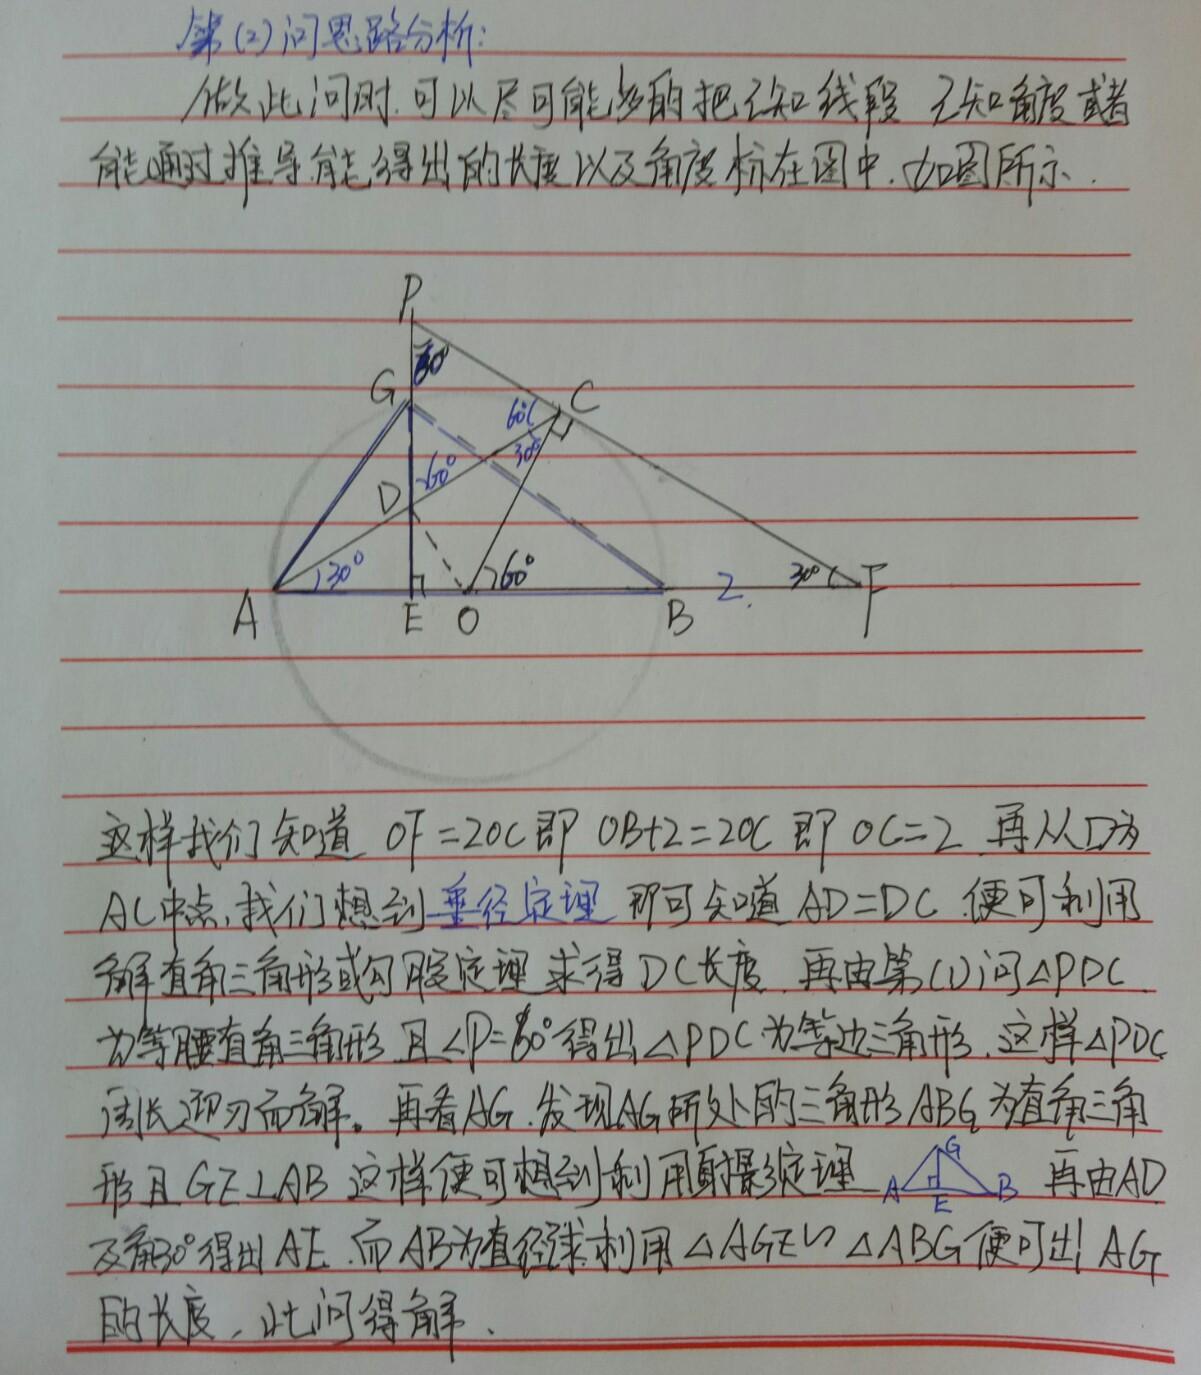 第(2)问思路分析:
做此问时.可以尽可能多的把已知线段 已知角度或者
能通过推导能得出的长度以及角度标在图中.如图所示.
P
60°
G
60°
C
30°
60°
D
30°
60°
2.
30°
A
E
O
B
F
这样我们知道 OF=2OC即 OB+2=2OC 即 OC=2 再从D为
AC中点,我们想到垂径定理 即可知道 AD=DC 便可利用
解直角三角形或勾股定理 求得DC长度.再由第(1)问△PDC
为等腰直角三角形 且∠P=60°得出△PDC为等边三角形.这样△PDC
周长迎刃而解。再看AG.发现AG所处的三角形ABG为直角三角
形且GE⊥AB 这样便可想到利用射影定理
G
A
E
B
再由AD
及角30°得出AE.而AB为直径 利用△AGE∽△ABG便可出AG
的长度、此问得解.